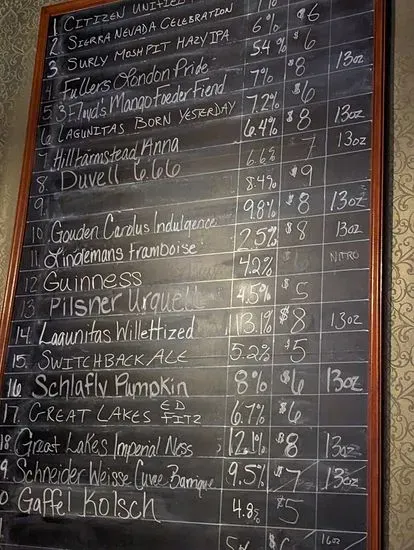 1 CITIZEN
2 SIERRA NEVADA CELEBRATION 6% $6
3 SURLY MOSHPIT HAZY IPA 5.4% $6
4 Fullers London Pride 7% $8 13oz
5. 3 Floyd's Mango Foeder Fiend 7.2% $6
6. LAGUNITAS BORN YESTERDAY 6.4% $8 13oz
7. Hillfarmstead Anna 6.6% $7 13oz
8. Duvell 6.66 8.4% $9
9.
10 Gouden Carolus Indulgence 9.8% $8 13oz
11 Lindemans Framboise 2.5% $8 13oz
12 GUINNESS 4.2% NITRO
13 Pilsner Urquell 4.5% $5
14. Lagunitas Willettized 13.1% $8 13oz
15. SWITCHBACK ALE 5.2% $5
16 Schlafly Pumpkin 8% $6 13oz
17. GREAT LAKES ED FITZ 6.7% $6
18. Great Lakes Imperial Ness 12.1% $8 13oz
9. Schneider Weisse Cuvee Barrique 9.5% $7 13oz
0 Gaffel Kolsch 4.8% $5
16oz